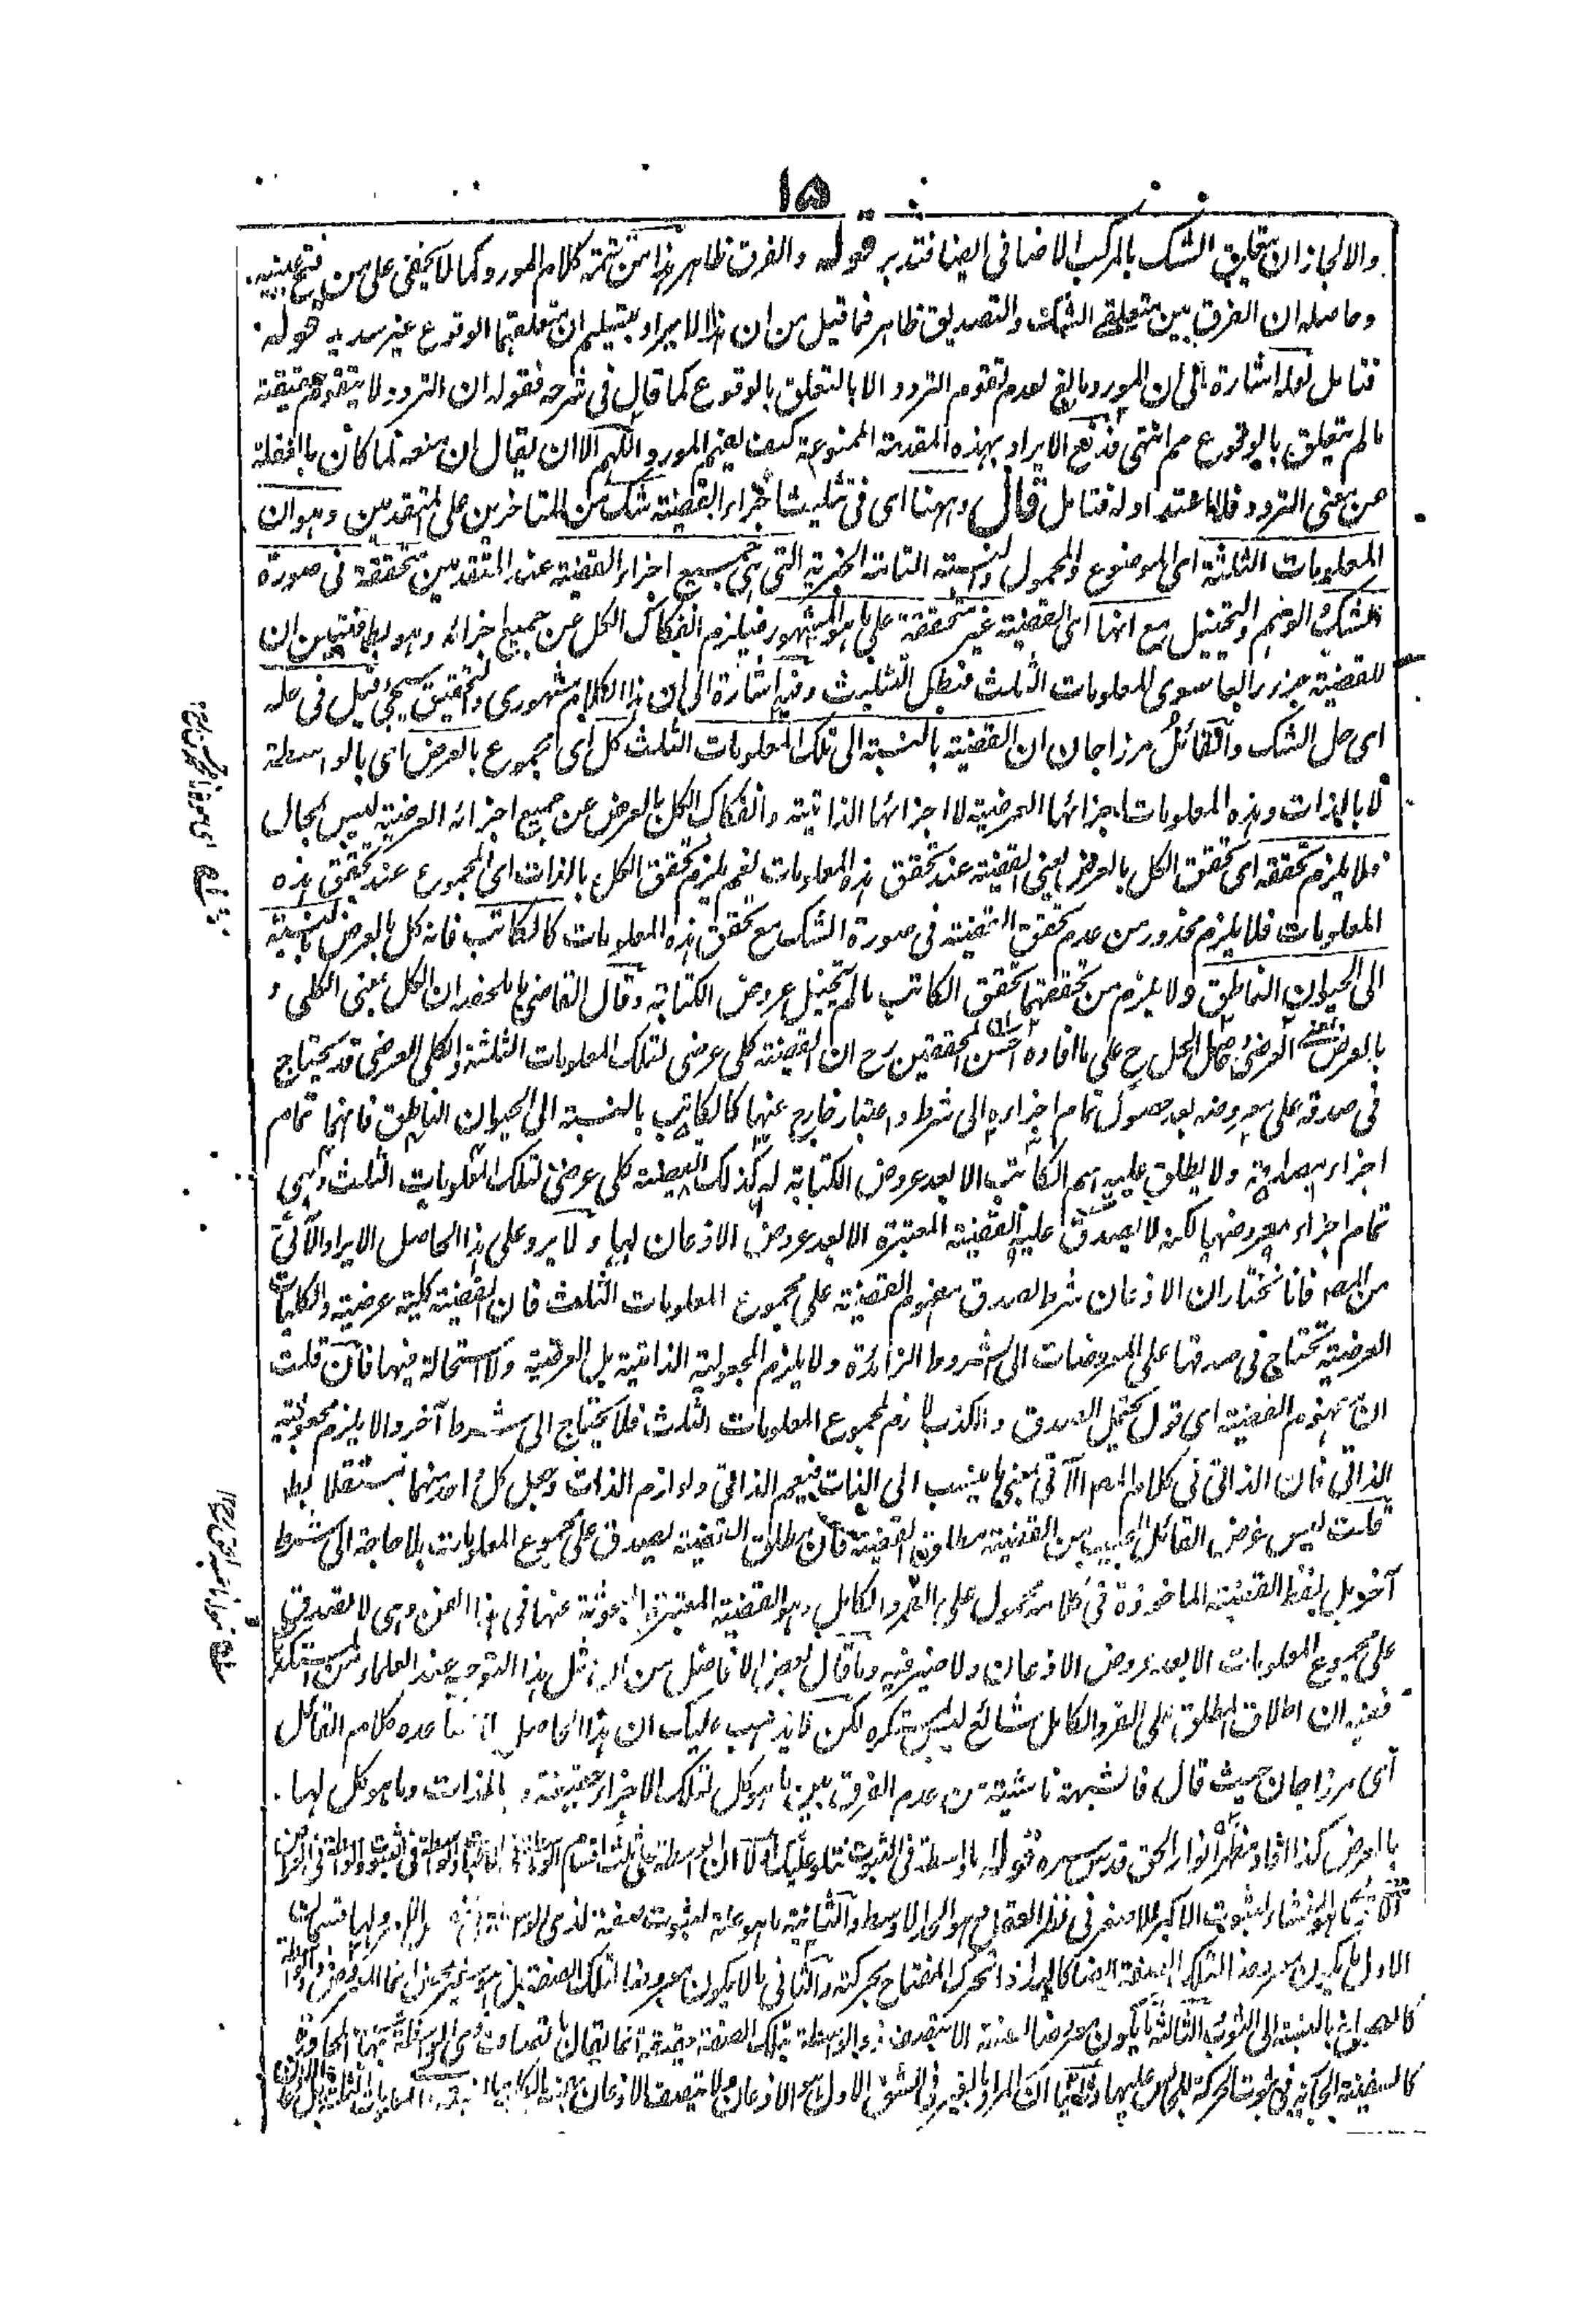 ۱۵
والا لجاز ان يتعلق الشك بالمركب الاضافى ايضا فتدبر قوله والفرق ظاهر هذا من تتمة كلام المورد كما لا يخفى على من فتح عينيه
وحاصله ان الفرق بين متعلقى الشك والتصديق ظاهر فما قيل من ان هذا الايراد بتسليم ان متعلقهما الوقوع غير سديد قوله
فتامل لعله اشارة الى ان المورد مانع لعدم تقوم التردد الا بالتعلق بالوقوع كما قال فى شرحه فقوله ان التردد لا يتقوم حقيقة
ما لم يتعلق بالوقوع مم انتهى فدفع الايراد بهذه المقدمة الممنوعة كيف يضر المورد اللهم الا ان يقال ان منعه لما كان بالغفلة
عن معنى التردد فلا اعتداد له فتامل قال وههنا اى فى تثليث اجزاء القضية شك من المتاخرين على المتقدمين وهو ان
المعلومات الثلثة اى الموضوع والمحمول والنسبة التامة الخبرية التى هى جميع اجزاء القضية عند المتقدمين متحققة فى صورة
الشك والوهم والتخييل مع انها اى القضية غير متحققة على ما هو المشهور فيلزم انفكاك الكل عن جميع اجزائه وهو بط فتبين ان
للقضية جزء رابعا سوى المعلومات الثلث فبطل التثليث وفيه اشارة الى ان هذا الكلام مشهورى والتحقيق سيجئ قيل فى حله
اى حل الشك والقائل مرزا جان ان القضية بالنسبة الى تلك المعلومات الثلث كل اى مجموع بالعرض اى بالواسطة
لا بالذات وهذه المعلومات اجزائها العرضية لا اجزائها الذاتية وانفكاك الكل بالعرض عن جميع اجزائه العرضية ليس بمحال
فلا يلزم تحققه اى تحقق الكل بالعرض يعنى القضية عند تحقق هذه المعلومات نعم يلزم تحقق الكل بالذات اى المجموع عند تحقق هذه
المعلومات فلا يلزم محذور من عدم تحقق القضية فى صورة الشك مع تحقق هذه المعلومات كالكاتب فانه كل بالعرض بالنسبة
الى الحيوان الناطق ولا يلزم من تحققهما تحقق الكاتب ما لم يتخيل عروض الكتابة وقال القاضى ما ملخصه ان الكل بمعنى الكلى و
بالعرض بمعنى العرضى وحاصل الحل ح على ما افاده احسن المحققين رح ان القضية كلى عرضى لتلك المعلومات الثلثة والكلى العرضى قد يحتاج
فى صدقه على معروضه بعد حصول تمام اجزاءه الى شرط واعتبار خارج عنها كالكاتب بالنسبة الى الحيوان الناطق فانهما تمام
اجزاء مصداقه ولا يطلق عليه اسم الكاتب الا بعد عروض الكتابة له كذلك القضية كلى عرضى لتلك المعلومات الثلث وهى
تمام اجزاء معروضها لكنه لا يصدق عليه القضية المعتبرة الا بعد عروض الاذعان لها ولا يرد على هذا الحاصل الايراد الآتى
من المص فانا نختار ان الاذعان شرط لصدق مفهوم القضية على مجموع المعلومات الثلث فان القضية كلية عرضية والكليات
العرضية تحتاج فى صدقها على المعروضات الى الشروط الزائدة ولا يلزم المجعولية الذاتية بل العرضية ولا استحالة فيها فان قلت
ان مفهوم القضية اى قول يحتمل الصدق والكذب لازم لمجموع المعلومات الثلث فلا يحتاج الى شرط آخر والا يلزم مجعولية
الذاتى فان الذاتى فى كلام المص الآتى بمعنى ما ينسب الى الذات فيعم الذاتى ولوازم الذات وجعل كل احد منهما مستقلا بط
قلت ليس غرض القائل المجيب من القضية مطلق القضية فان مطلق القضية يصدق على مجموع المعلومات بلا حاجة الى شرط
آخر بل لفظ القضية الماخوذة فى كلامه محمول على الفرد الكامل وهو القضية المعتبرة المبحوثة عنها فى هذا الفن وهى لا تصدق
على مجموع المعلومات الا بعد عروض الاذعان ولا ضير فيه وما قال بعض الافاضل من ان مثل هذا التوجيه عند العلماء
ففيه ان اطلاق المطلق على الفرد الكامل شائع ليس بمستنكر لكن لا يذهب عليك ان هذا الحاصل لا يساعده كلام القائل
اى مرزا جان حيث قال فالشبهة ناشية من عدم الفرق بين ما هو كل لتلك الاجزاء حقيقة وبالذات وما هو كل لها
بالعرض كذا افاد مظهر انوار الحق قدس سره قوله بالواسطة فى الثبوت نتلو عليك اولا ان الواسطة على ثلثة اقسام
ما هو منشاء لثبوت الاكبر للاصغر فى نظر العقل وهو الحد الاوسط والثانية ما هو علة لثبوت صفة لذى الواسطة
الاول ما يكون معروضا لتلك الصفة ايضا كاليد اذا تحرك المفتاح بحركته والثانى ما لا يكون معروضا لتلك الصفة بل هو سفير محض
كالصباغ بالنسبة الى الثوب الثالثة ما يكون معروضا لصفة
كالسفينة الجارية فى ثبوت الحركة للجالس عليها وثانيا ان المراد بالغير فى الشق الاول هو الاذعان ولا يتصف الاذعان